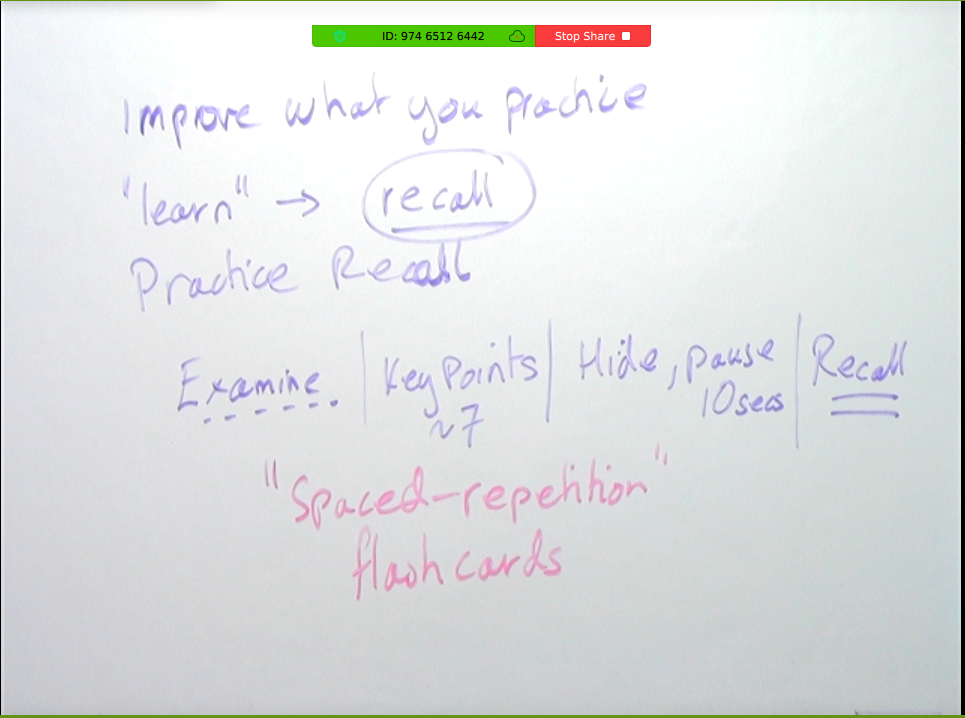 ID: 974 6512 6442 Stop Share
Improve what you practice
"learn" → recall
Practice Recall
Examine. | Key Points | Hide, pause | Recall
~7 10secs
"Spaced-repetition"
flashcards